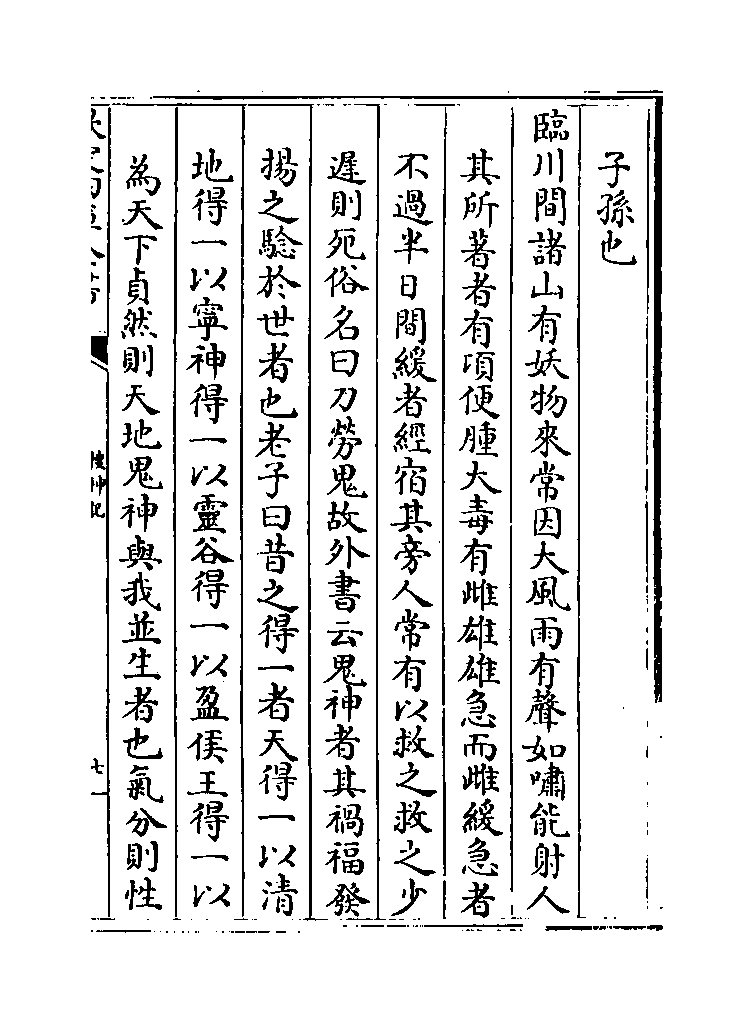 子孫也
臨川間諸山有妖物來常因大風雨有聲如嘯能射人
其所著者有項便腫大毒有雌雄雄急而雌緩急者
不過半日間緩者經宿其旁人常有以救之救之少
遲則死俗名曰刀勞鬼故外書云鬼神者其禍福發
揚之驗於世者也老子曰昔之得一者天得一以清
地得一以寧神得一以靈谷得一以盈侯王得一以
為天下貞然則天地鬼神與我並生者也氣分則性
搜神記
七